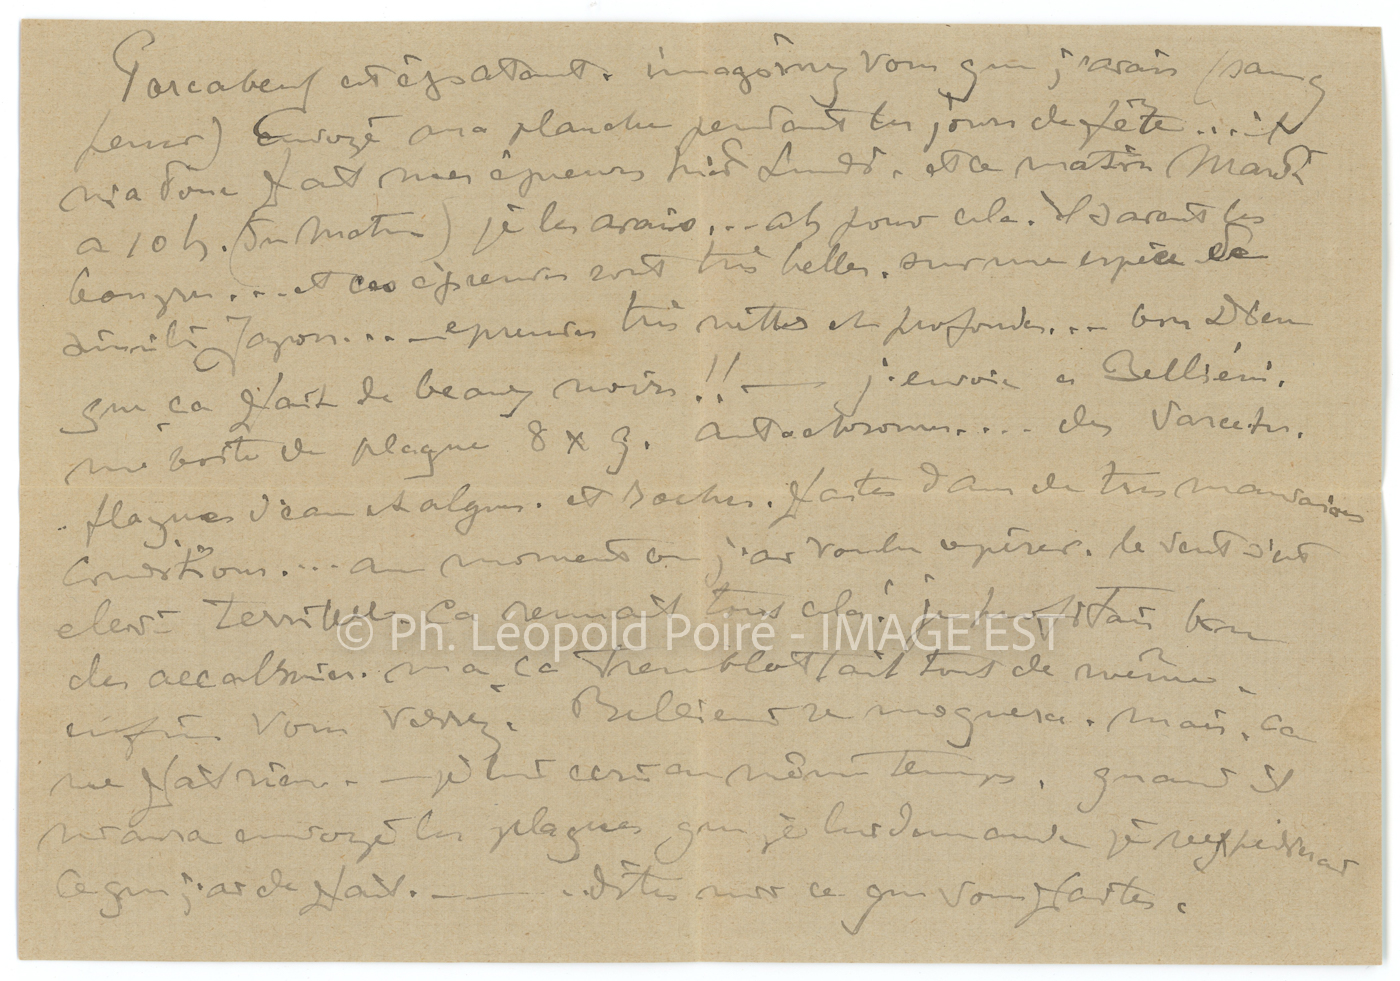 Porcabeuf est épatant. imaginez vous que j'avais (sans
penser) Envoyé ma planche pendant les jours de fête.... il
m'a donc fait mes épreuves hier Lundi. et ce matin Mardi
a 10 h. (du matin) je les avais... ah pour cela. il s'avait les
... et ces épreuves sont très belles. sur une espèce de
simili Japon.... — épreuves très nettes et profondes... — bon Dieu
que ça fait de beaux noirs!! — j'envoie a Belliéni.
une boite de plaques 8 x 9. autochromes.... des Varechs.
flaques d'eau et algues. et rochers. faites dans de très mauvaises
conditions.... au moment ou j'ai voulu opérer. le vent s'est
élevé terrible. Ca remuait tous cela! je profitais bien
des accalmies. mais ça tremblottait tous de même.
enfin vous verrez. Bellieni se moquera. mais. ça
ne fait rien. — je lui écris en même temps. quand il
m'aura envoyé les plaques que je lui demande je réexpédierai
ce que j'ai de fait. — ..dites moi ce que vous faites.
© Ph. Léopold Poiré - IMAGE'EST